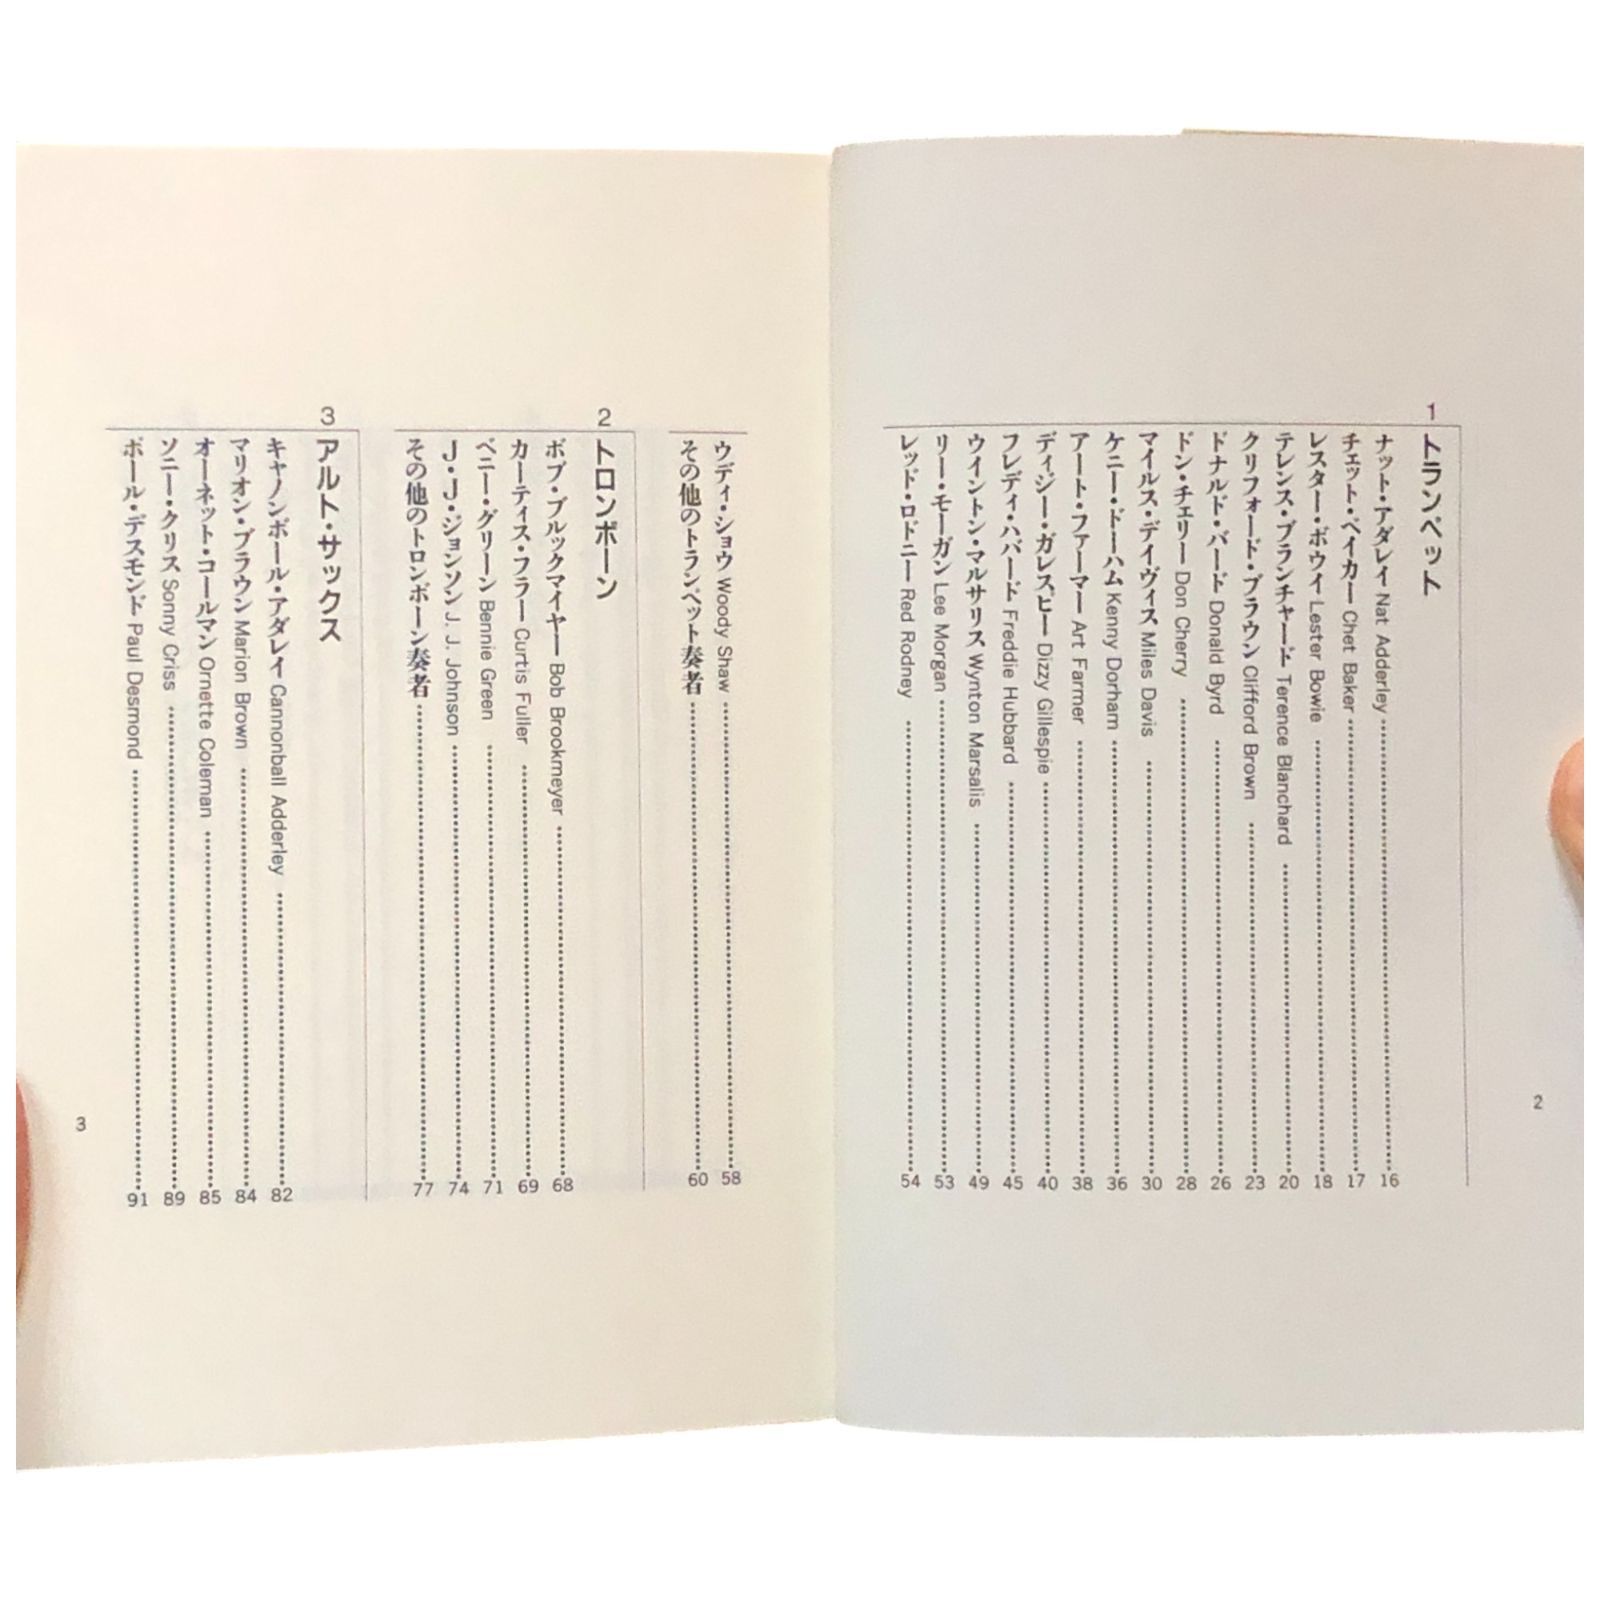 1 トランペット
ナット・アダレイ Nat Adderley 16
チェット・ベイカー Chet Baker 17
レスター・ボウイ Lester Bowie 18
テレンス・ブランチャード Terence Blanchard 20
クリフォード・ブラウン Clifford Brown 23
ドナルド・バード Donald Byrd 26
ドン・チェリー Don Cherry 28
マイルス・デイヴィス Miles Davis 30
ケニー・ドーハム Kenny Dorham 36
アート・ファーマー Art Farmer 38
ディジー・ガレスピー Dizzy Gillespie 40
フレディ・ハバード Freddie Hubbard 45
ウイントン・マルサリス Wynton Marsalis 49
リー・モーガン Lee Morgan 53
レッド・ロドニー Red Rodney 54
2
ウディ・ショウ Woody Shaw 58
その他のトランペット奏者 60
2 トロンボーン
ボブ・ブルックマイヤー Bob Brookmeyer 68
カーティス・フラー Curtis Fuller 69
ベニー・グリーン Bennie Green 71
J・J・ジョンソン J. J. Johnson 74
その他のトロンボーン奏者 77
3 アルト・サックス
キャノンボール・アダレイ Cannonball Adderley 82
マリオン・ブラウン Marion Brown 84
オーネット・コールマン Ornette Coleman 85
ソニー・クリス Sonny Criss 89
ポール・デスモンド Paul Desmond 91
3